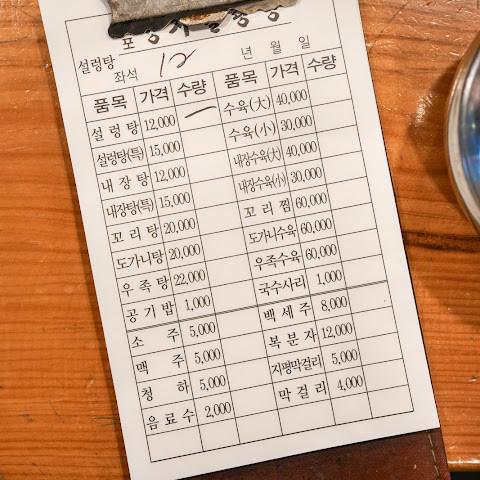 설렁탕
좌석 12 년 월 일
품목 가격 수량 품목 가격 수량
설렁탕 12,000 수육(大) 40,000
설렁탕(특) 15,000 수육(小) 30,000
내장탕 12,000 내장수육(大) 40,000
내장탕(특) 15,000 내장수육(小) 30,000
꼬리탕 20,000 꼬리찜 60,000
도가니탕 20,000 도가니수육 60,000
우족탕 22,000 우족수육 60,000
공기밥 1,000 국수사리 1,000
소주 5,000 백세주 8,000
맥주 5,000 복분자 12,000
청하 5,000 지평막걸리 5,000
음료수 2,000 막걸리 4,000